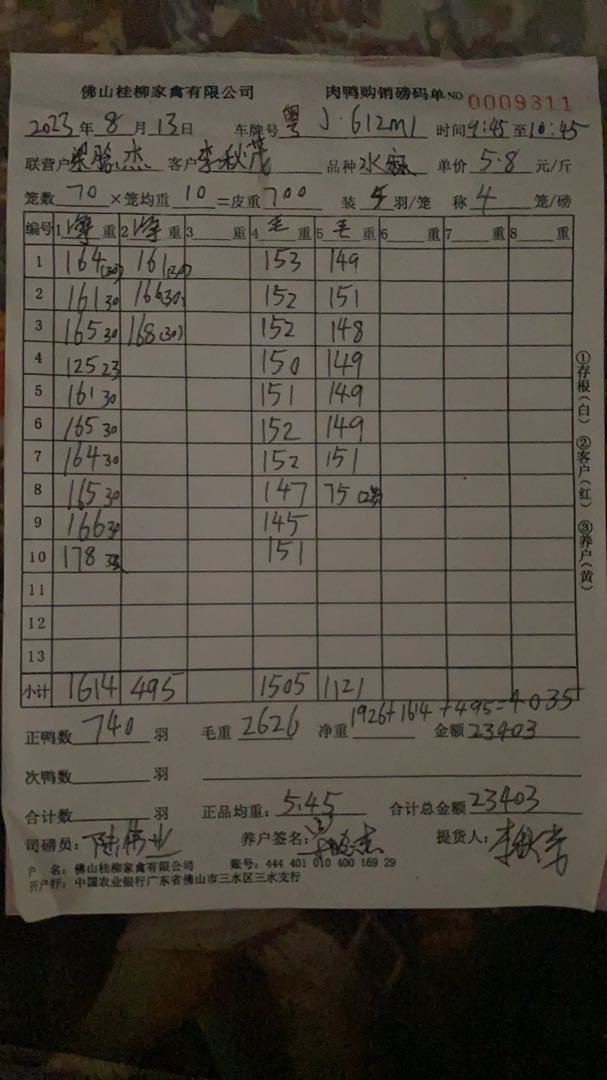 佛山桂柳家禽有限公司 肉鸭购销磅码单 NO 0009311
2023年8月13日 车牌号 粤J·612M1 时间9:45至10:45
联营户 杰 客户 李秋茂 品种 水 单价 5.8 元/斤
笼数 70 ×笼均重 10 =皮重 700 装 5 羽/笼 称 4 笼/磅
编号 1 净 重 2 净 重 3 重 4 毛 重 5 毛 重 6 重 7 重 8 重
1 164(30) 161(30) 153 149
2 161 30 166(30) 152 151
3 165 30 168(30) 152 148
4 125 23 150 149
5 161 30 151 149
6 165 30 152 149
7 164 30 152 151
8 165 30 147 75
9 166 30 145
10 178 151
11
12
13
小计 1614 495 1505 1121
正鸭数 740 羽 毛重 2626 净重 1926+1614+495=4035 金额 23403
次鸭数 羽
合计数 羽 正品均重: 5.45 合计总金额 23403
司磅员: 养户签名: 提货人:
户 名: 佛山桂柳家禽有限公司 账号: 444 401 010 400 169 29
开户行: 中国农业银行广东省佛山市三水区三水支行
①存根(白) ②客户(红) ③养户(黄)